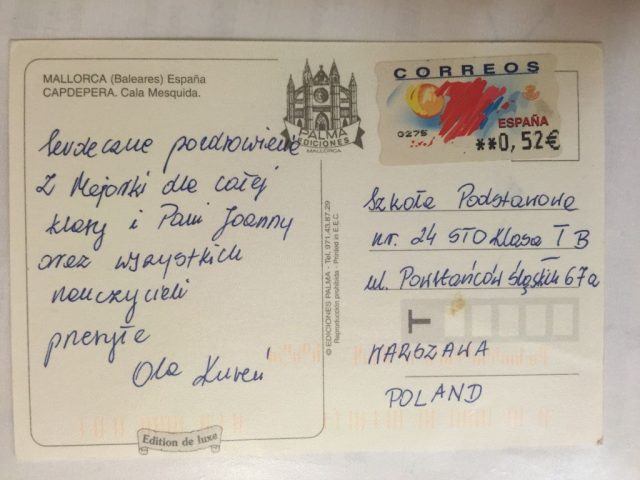 MALLORCA (Baleares) España
CAPDEPERA. Cala Mesquida.
PALMA
EDICIONES
MALLORCA
CORREOS
0275
ESPAÑA
**0,52€
Serdeczne pozdrowienia
Z Majorki dla całej
klasy i Pani Joanny
oraz wszystkich
nauczycieli
przesyła
Ola
© EDICIONES PALMA - Tel. 971.43.87.29
Reproducción prohibida - Printed in E.E.C.
Szkoła Podstawowa
nr. 24 STO Klasa I B
ul. Powstańców Śląskich 67a
T
WARSZAWA
POLAND
Edition de luxe